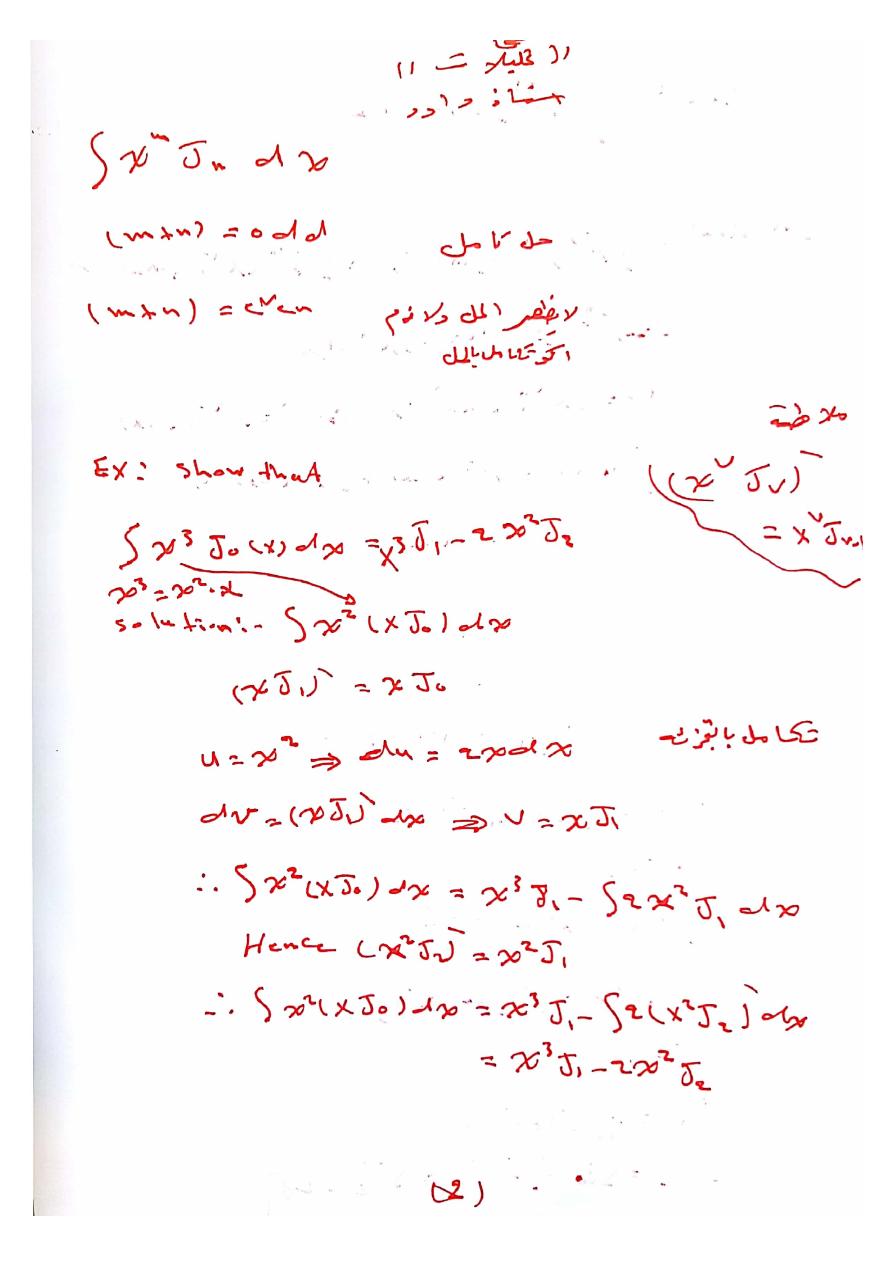 (( تحليلات ))
∫ x^m J_n dx
(m+n) = odd
حل كامل
(m+n) = even
لا يظهر الحل ولازم
اكو تكامل بالحل
ملاحظة
(x^ν J_ν)‾
= x^ν J_ν-1
EX: show that
∫ x^3 J_0(x) dx = x^3 J_1 - 2x^2 J_2
x^3 = x^2 . x
solution:- ∫ x^2 (x J_0) dx
(x J_1)‾ = x J_0
u = x^2 ⇒ du = 2x dx
تكامل بالتجزئة
dv = (x J_1)‾ dx ⇒ v = x J_1
∴ ∫ x^2 (x J_0) dx = x^3 J_1 - ∫ 2x^2 J_1 dx
Hence (x^2 J_2)‾ = x^2 J_1
∴ ∫ x^2 (x J_0) dx = x^3 J_1 - ∫ 2(x^2 J_2)‾ dx
= x^3 J_1 - 2x^2 J_2
(2)